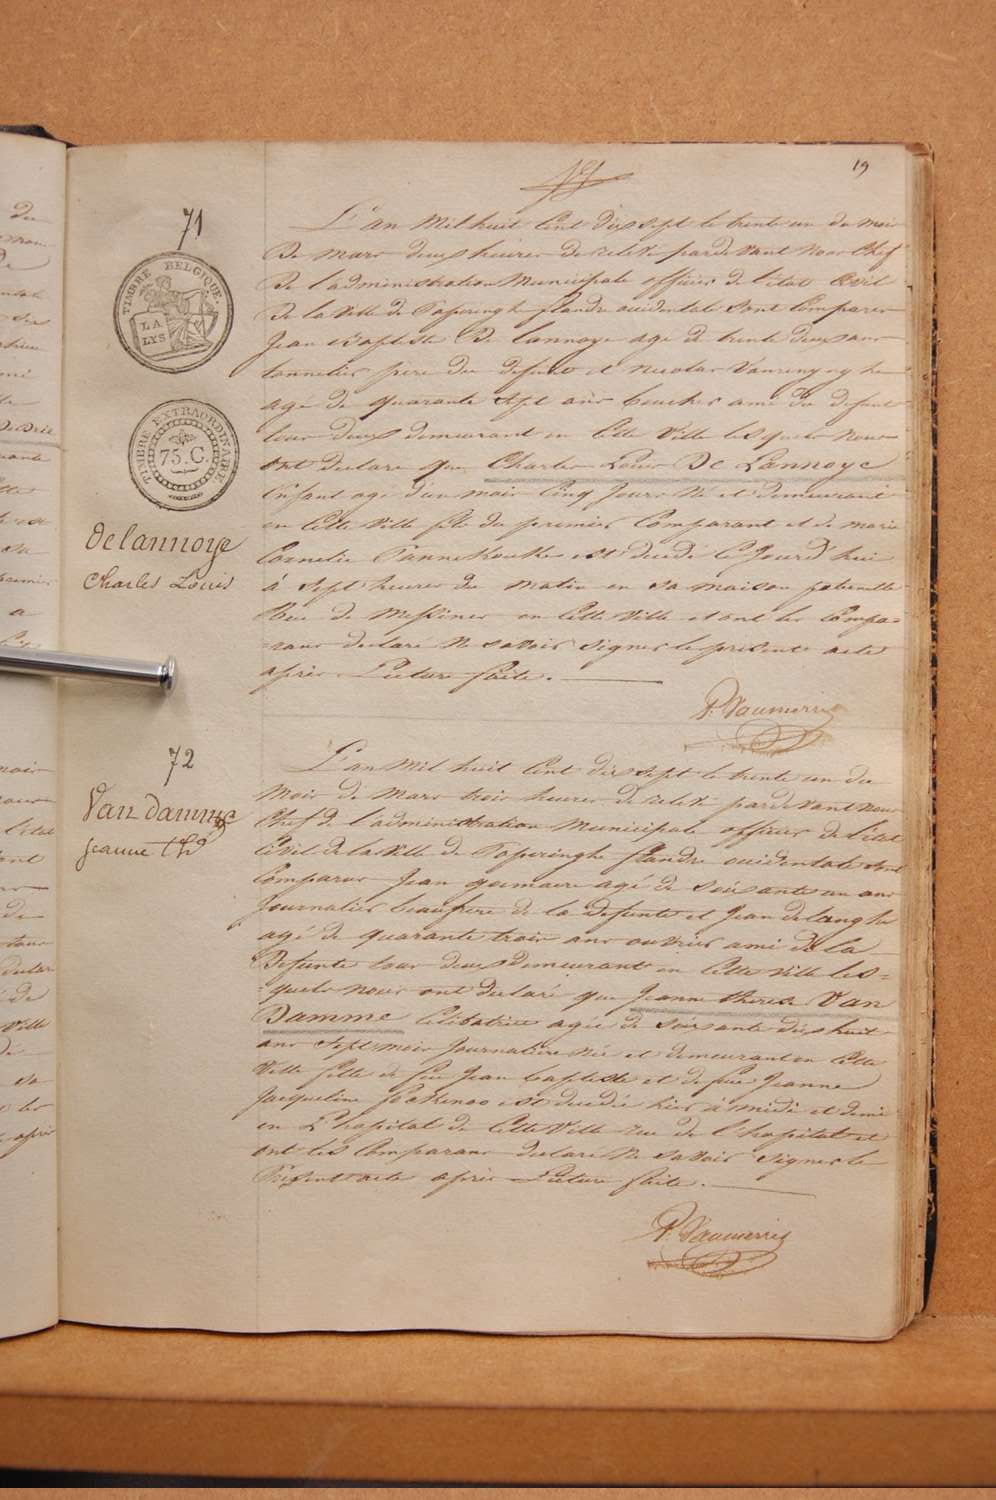 19
71
TIMBRE BELGIQUE.
LA
LYS
TIMBRE EXTRAORDINAIRE
75. C.
Delannoye
Charles Louis
L'an Mil huit Cent dix sept le trente un du mois
De mars deux heures de relevé pardevant Nous Chef
De l'administration Municipale officier de l'état Civil
De la Ville de Poperinghe flandre occidentale Sont Comparus
Jean Baptiste De lannoye age de trente deux ans
tonnelier frère du défunt et nicolas
agé de quarante Sept ans boucher ami du defunt
tous deux demeurant en Cette Ville lesquels nous
ont declaré que Charles Louis De Lannoye
Enfant agé d'un mois Cinq Jours Né et demeurant
en Cette Ville fils du premier Comparant et de marie
Cornelie Pannekoucke est décédé Cejourd'hui
à Sept heures du matin en Sa maison
Rue de Messines en Cette Ville et ont les Compa=
=rans declaré Ne savoir Signer le présent acte
après Lecture faite.
P. Vanmerris
72
Van Damme
Jeanne thé
L'an Mil huit Cent dix sept le trente un du
Mois de Mars trois heures de relevé pardevant nous
Chef de l'administration Municipale officier de l'état
Civil de la Ville de Poperinghe flandre occidentale Sont
Comparus Jean agé de Soixante un ans
Journalier beaufrere de la defunte et Jean delanghe
agé de quarante trois ans ouvrier ami de la
Defunte tous deux demeurant en Cette Ville les=
=quels nous ont declaré que Jeanne therese Van
Damme Celibatrice agée de Soixante dix huit
ans Sept mois Journaliere née et demeurant en Cette
Ville fille de feu Jean baptiste et de feue Jeanne
Jacqueline est decedée hier à midi et demi
en L'hopital de Cette Ville rue de l'hopital et
ont les Comparans declaré Ne savoir Signer le
Présent acte après Lecture faite.
P. Vanmerris